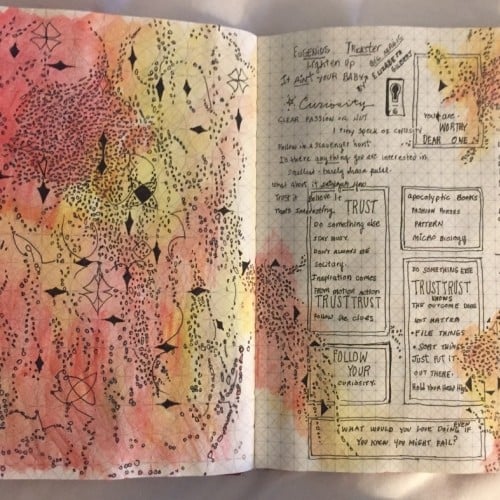 EUGENIUS Theater
Lighten up BIG MAGIC
It AIN'T YOUR BABY BY ELIZABETH GILBERT
Curiosity
CLEAR PASSION OR NOT
1 tiny speck of curiosity
Follow in a scavenger hunt
Is there anything you are interested in.
Trust it Believe It
That's Interesting.
YOU are
WORTHY
DEAR ONE
TRUST
DO something else
STAY BUSY.
DON'T ALWAYS BE
SOLITARY.
Inspiration comes
FROM MOTION ACTION
TRUSTTRUST
FOLLOW the CLUES.
apocalyptic Books
PATTERN
MICRO BIOLOGY
DO SOMETHING ELSE
TRUSTTRUST
KNOWS
THE OUTCOME DOES
NOT MATTER
• FILE THINGS
• SORT THINGS
JUST PUT IT
OUT THERE.
Hold Your Head High
FOLLOW
YOUR
CURIOSITY.
WHAT WOULD YOU LOVE DOING IF EVEN
YOU KNEW YOU MIGHT FAIL?